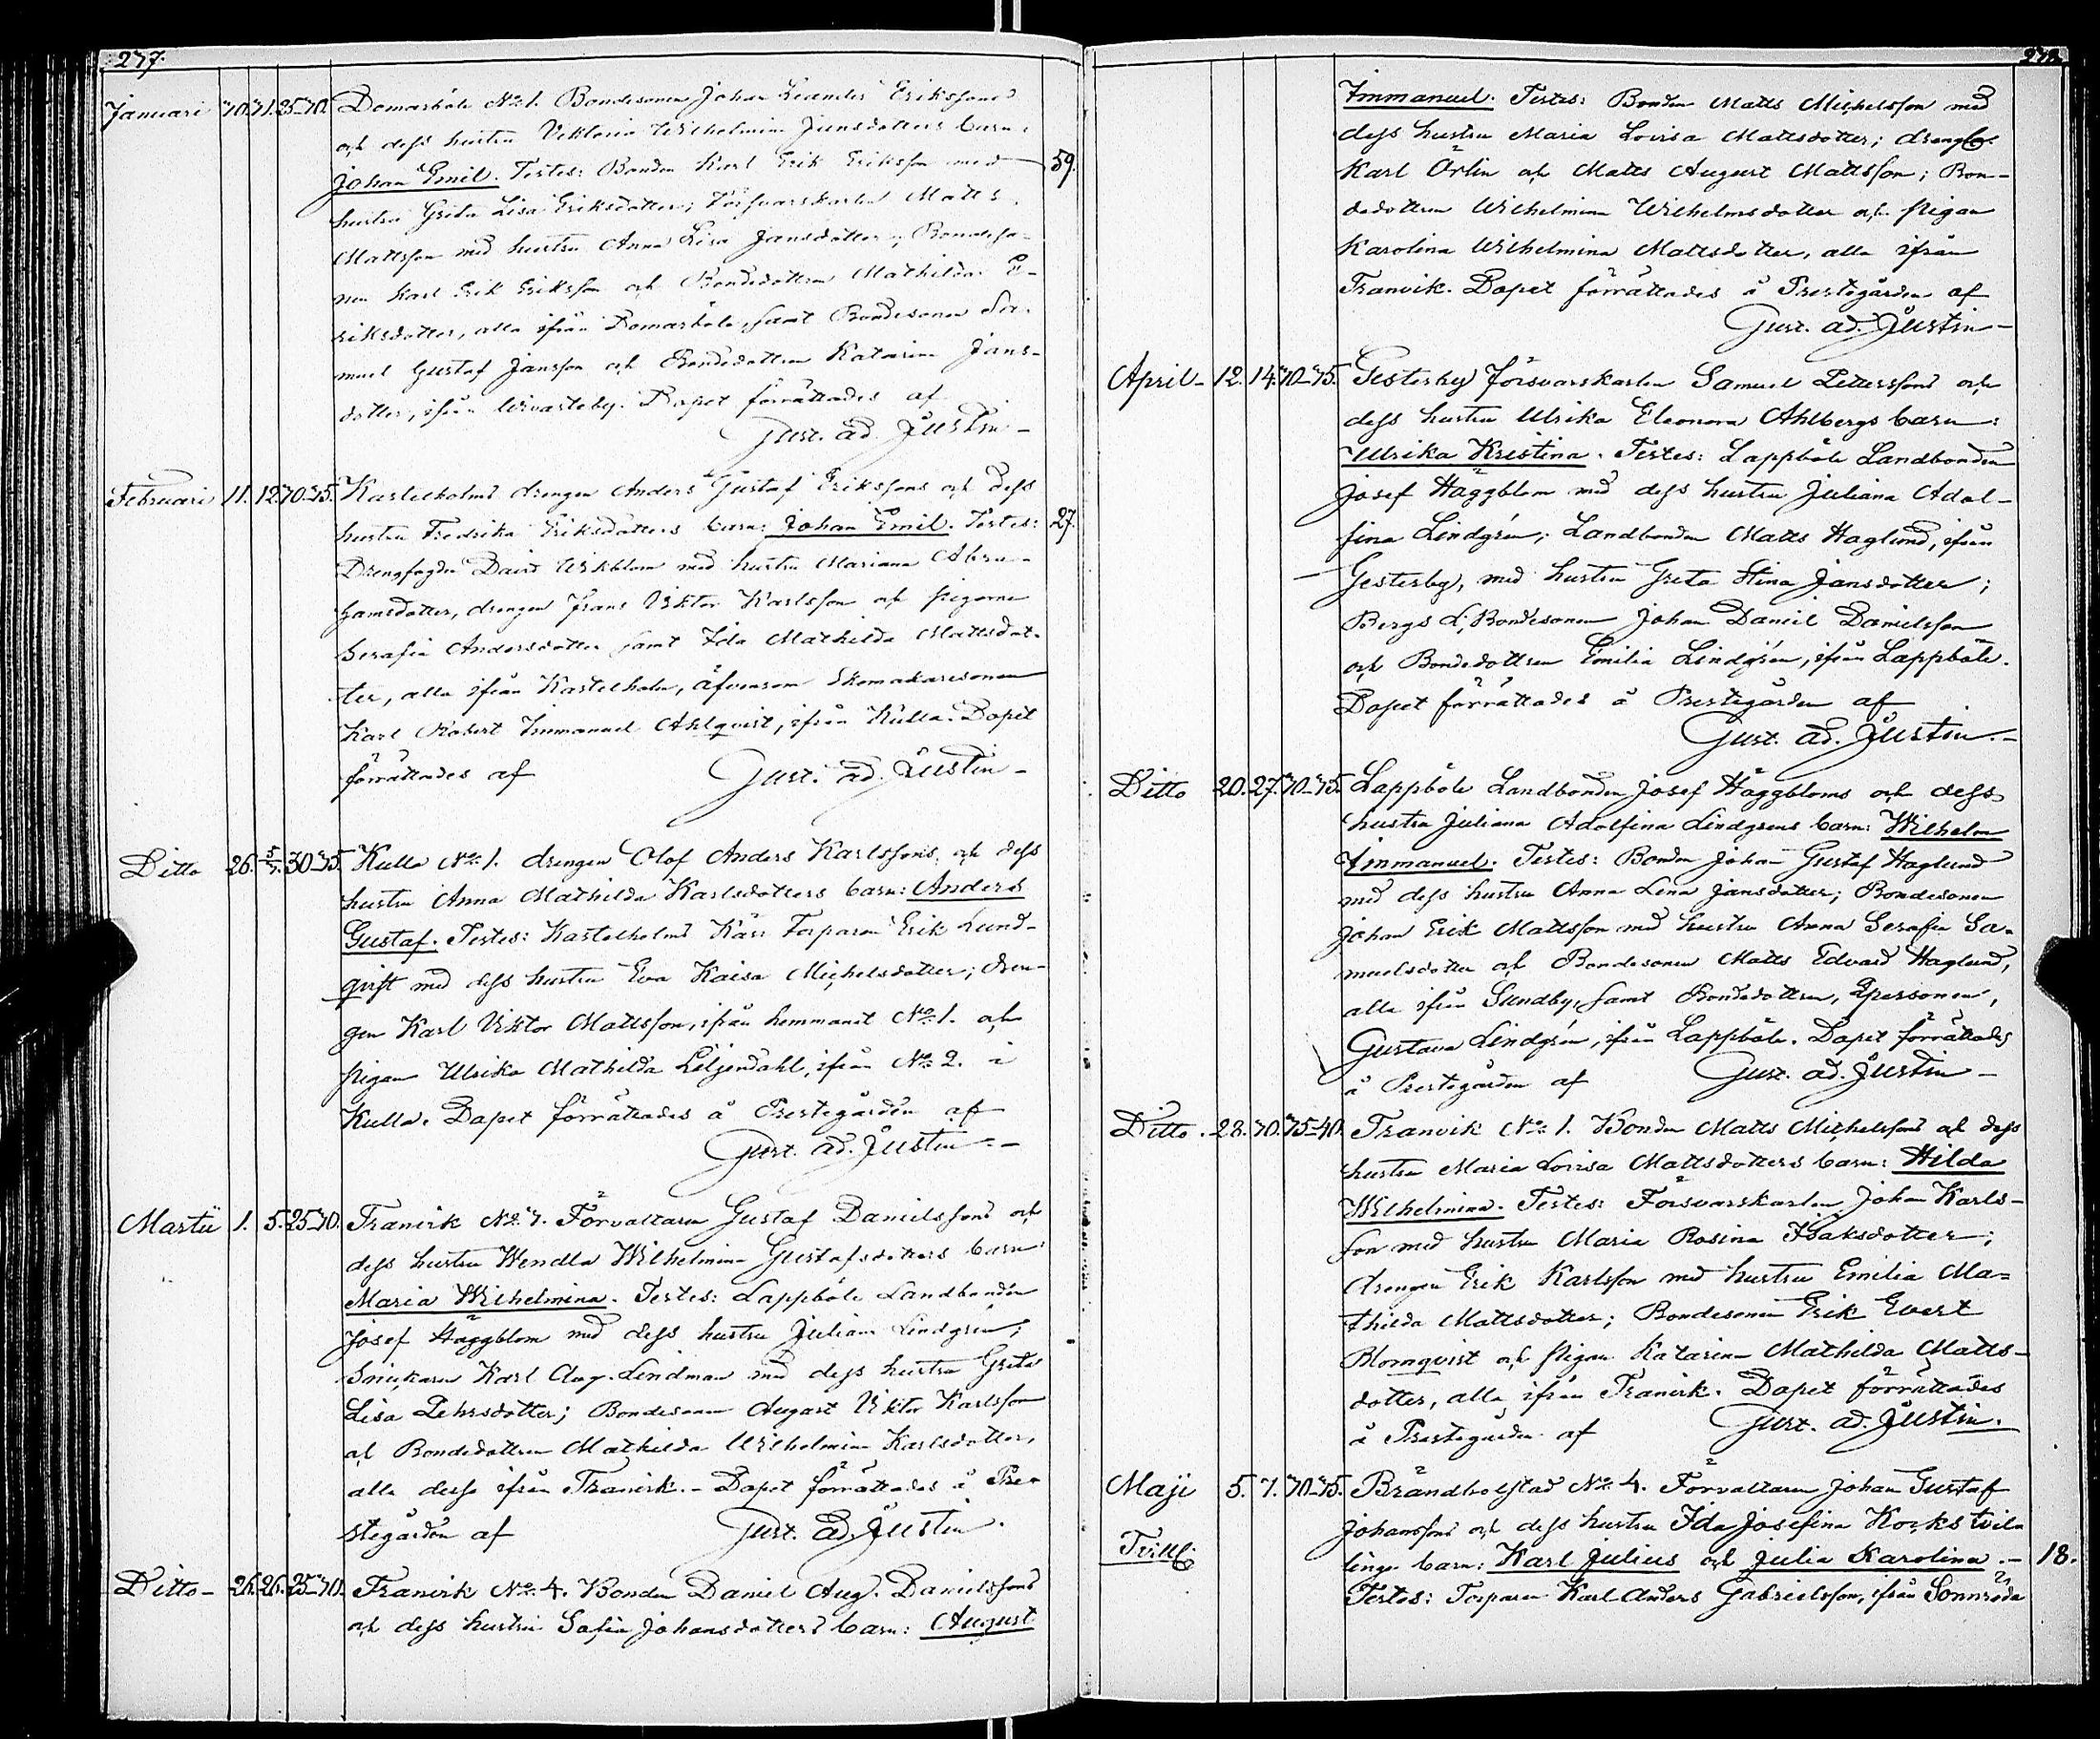 277.
Januari 30. 31. 25-30. Domarböle No 1. Bondesonen Johan Leander Erikssons
och dess hustru Viktoria Wilhelmina Jansdotters barn:
Johan Emil. Testes: Bonden Karl Erik Eriksson med 59.
hustru Greta Lisa Eriksdotter; Försvarskarlen Matts
Mattsson med hustru Anna Lisa Jansdotter; Bondeso-
nen Karl Erik Eriksson och Bondedottren Mathilda E-
riksdotter, alla ifrån Domarböle, samt Bondesonen Sa-
muel Gustaf Jansson och Bondedottren Katarina Jans-
dotter, ifrån Wivasteby. Dopet förrättades af
Gust. Ad. Justin-
Februari 11. 12. 30-35. Kastelholms drengen Anders Gustaf Erikssons och dess
hustru Fredrika Eriksdotters barn: Johan Emil. Testes: 27.
Drengfogden David Wikblom med hustru Mariana Abra-
hamsdotter, drengen Frans Viktor Karlsson och pigorne
Serafia Andersdotter samt Ida Mathilda Mattsdot-
ter, alla ifrån Kastelholm, äfvensom Skomakaresonen
Karl Robert Immanuel Ahlqvist, ifrån Kulla. Dopet
förrättades af Gust. Ad. Justin-
Ditto 26. 5/3. 30-35. Kulla No 1. drengen Olof Anders Karlssons och dess
hustru Anna Mathilda Karlsdotters barn: Anders
Gustaf. Testes: Kastelholms Kärr Torparen Erik Lund-
qvist med dess hustru Eva Kaisa Michelsdotter; dren-
gen Karl Viktor Mattsson, ifrån hemmanet No 1. och
pigan Ulrika Mathilda Liljendahl, ifrån No 2. i
Kulla. Dopet förrättades å Prestegården af
Gust. Ad. Justin.-
Martii 1. 5. 25-30. Tranvik No 7. Förvaltaren Gustaf Danielssons och
dess hustru Wendla Wilhelmina Gustafsdotters barn:
Maria Wilhelmina. Testes: Lappböle Landbonden
Josef Häggblom med dess hustru Juliana Lindgren;
Snickaren Karl Aug. Lindman med dess hustru Greta
Lisa Pehrsdotter; Bondesonen August Viktor Karlsson
och Bondedottren Mathilda Wilhelmina Karlsdotter,
alla desse ifrån Tranvik.- Dopet förrättades å Pre-
stegården af Gust. Ad. Justin.
Ditto- 26. 26. 25-30. Tranvik No 4. Bonden Daniel Aug. Danielssons
och dess hustru Sofia Johansdotters barn: August
278.
Immanuel. Testes: Bonden Matts Michelsson med
dess hustru Maria Lovisa Mattsdotter;
Karl Örlin och Matts August Mattsson; Bon-
dedottren Wilhelmina Wilhelmsdotter och pigan
Karolina Wilhelmina Mattsdotter, alla ifrån
Tranvik. Dopet förrättades å Prestegården af
Gust. Ad. Justin-
April- 12. 14. 30-35. Gesterby Försvarskarlen Samuel Petterssons och
dess hustru Ulrika Eleonora Ahlbergs barn:
Ulrika Kristina. Testes: Lappböle Landbonden
Josef Häggblom med dess hustru Juliana Adol-
fina Lindgrén; Landbonden Matts Haglund, ifrån
Gesterby, med hustru Greta Stina Jansdotter;
Bergs Bondesonen Johan Daniel Danielsson
och Bondedottren Emilia Lindgrén, ifrån Lappböle.
Dopet förrättades å Prestegården af
Gust. Ad. Justin.-
Ditto 20. 27. 30-35. Lappböle Landbonden Josef Häggbloms och dess
hustru Juliana Adolfina Lindgrens barn: Wilhelm
Immanuel. Testes: Bonden Johan Gustaf Haglund
med dess hustru Anna Lena Jansdotter; Bondesonen
Johan Erik Mattsson med hustru Anna Serafia Sa-
muelsdotter och Bondesonen Matts Edvard Haglund,
alla ifrån Sundby, samt Bondedottren,
Gustava Lindgrén, ifrån Lappböle. Dopet förrättades
å Prestegården af Gust. Ad. Justin-
Ditto. 28. 30. 35-40. Tranvik No 1. Bonden Matts Michelssons och dess
hustru Maria Lovisa Mattsdotters barn: Hilda
Wilhelmina. Testes: Försvarskarlen Johan Karls-
son med hustru Maria Rosina Isaksdotter;
drengen Erik Karlsson med hustru Emilia Ma-
thilda Mattsdotter; Bondesonen Erik Evert
Blomqvist och pigan Katarina Mathilda Matts-
dotter, alla ifrån Tranvik. Dopet förrättades
å Prestegården af Gust. Ad. Justin.
Maji 5. 7. 30-35. Brändbolstad No 4. Förvaltaren Johan Gustaf
Johanssons och dess hustru Ida Josefina Kocks tvil-
Tvill. linge barn: Karl Julius och Julia Karolina.- 18.
Testes: Torparen Karl Anders Gabrielsson, ifrån Sonnröda